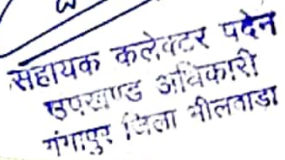 सहायक कलेक्टर पदेन
उपखण्ड अधिकारी
गंगापुर जिला भीलवाडा